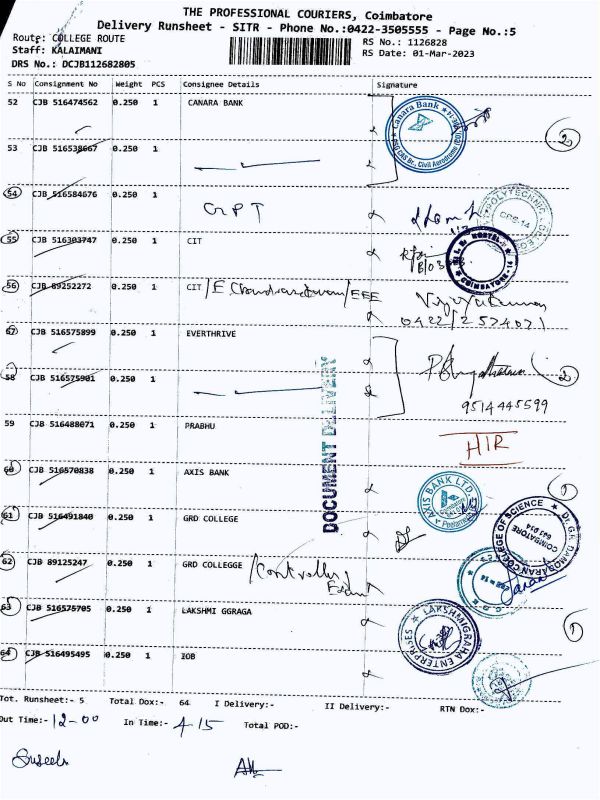 THE PROFESSIONAL COURIERS, Coimbatore
Delivery Runsheet - SITR - Phone No.:0422-3505555 - Page No.:5
Route: COLLEGE ROUTE
RS No.: 1126828
Staff: KALAIMANI
RS Date: 01-Mar-2023
DRS No.: DCJB112682805
S No Consignment No Weight PCS Consignee Details Signature
52 CJB 516474562 0.250 1 CANARA BANK
Canara Bank
2
53 CJB 516538667 0.250 1
54 CJB 516584676 0.250 1
GPT
POLYTECHNIC COLLEGE
55 CJB 516303747 0.250 1 CIT
HOSTEL
COIMBATORE-14
56 CJB 89252272 0.250 1 CIT / EEE
Vijayakumar
0422/2574071
57 CJB 516575899 0.250 1 EVERTHRIVE
58 CJB 516575901 0.250 1
2
9514445599
DOCUMENT DELIVERY
59 CJB 516488071 0.250 1 PRABHU
HIR
60 CJB 516570838 0.250 1 AXIS BANK
AXIS BANK LTD.
61 CJB 516491840 0.250 1 GRD COLLEGE
Dr. G.R. DAMODARAN COLLEGE OF SCIENCE
COIMBATORE
641 014
62 CJB 89125247 0.250 1 GRD COLLEGGE / Controller
63 CJB 516575705 0.250 1 LAKSHMI GGRAGA
LAKSHMIGRAHA ENTERPRISES
1
64 CJB 516495495 0.250 1 IOB
Tot. Runsheet:- 5 Total Dox:- 64 I Delivery:- II Delivery:- RTN Dox:-
Out Time:- 12-00 In Time:- 4-15 Total POD:-
Suseela